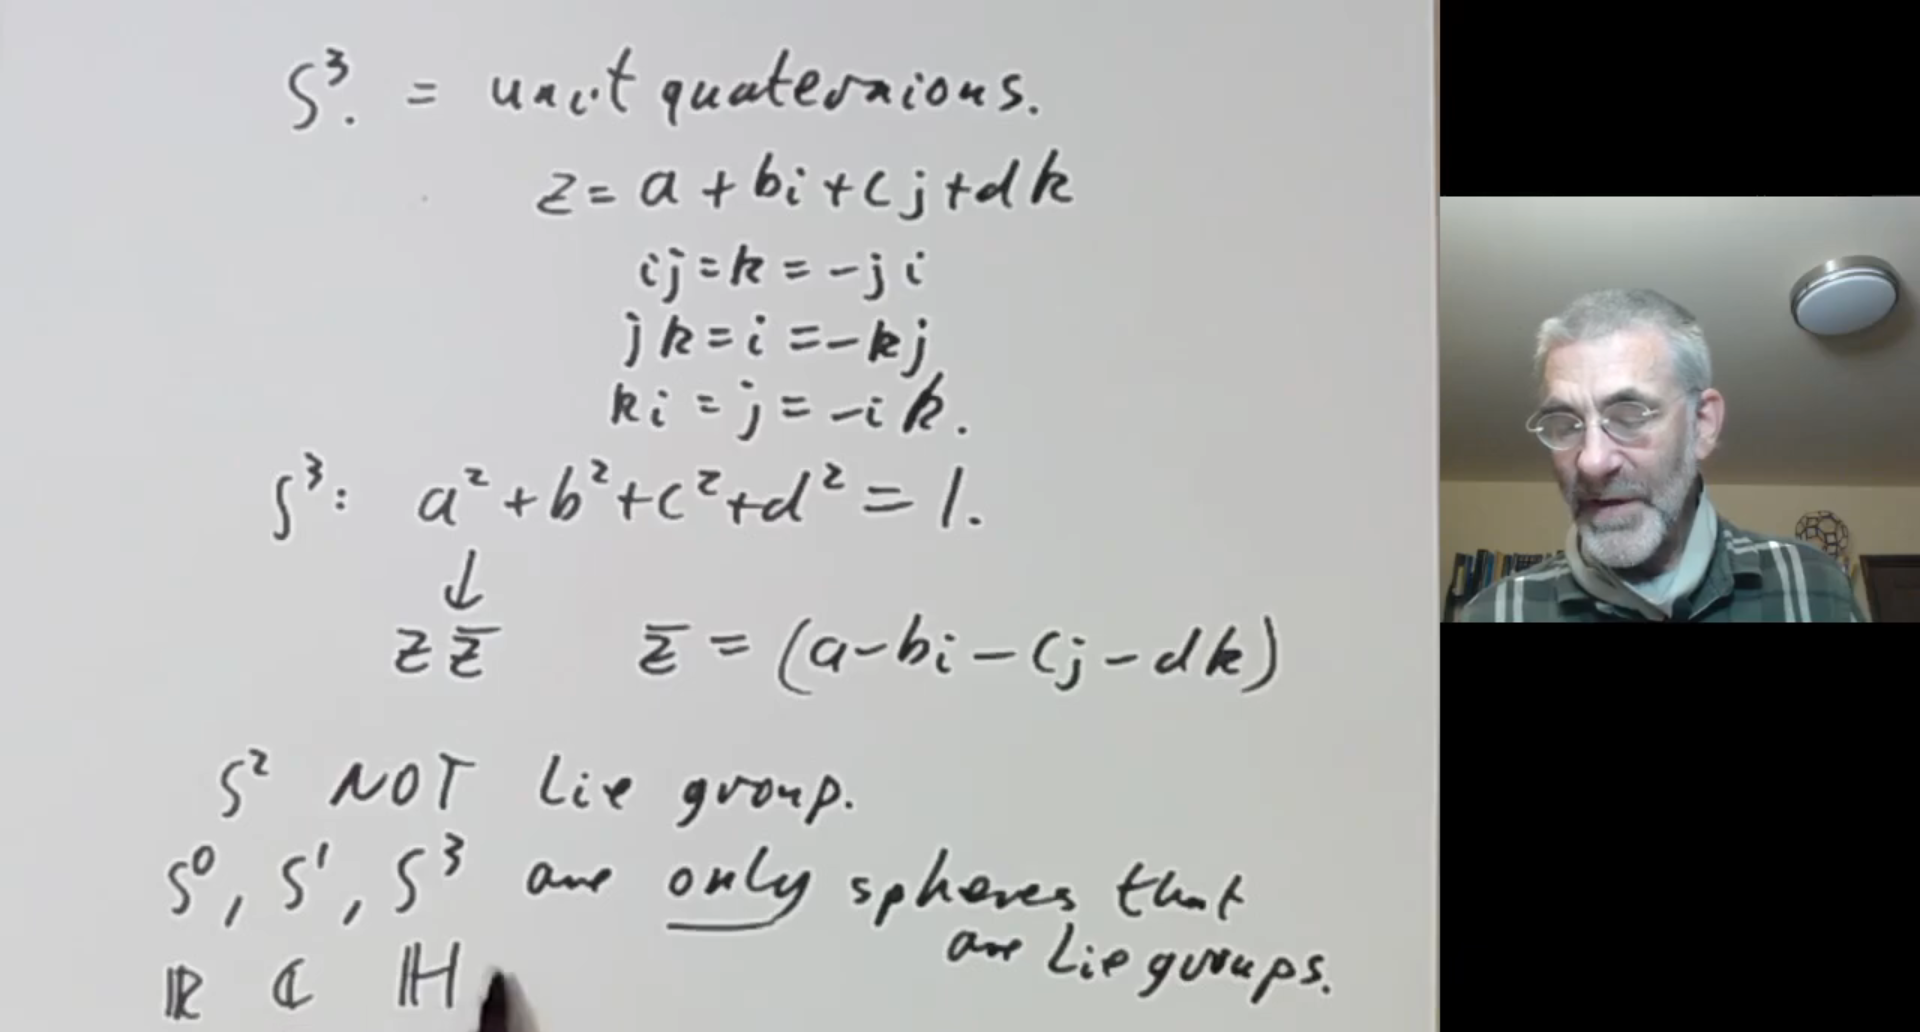 S³. = unit quaternions.
z = a + bi + cj + dk
ij = k = -ji
jk = i = -kj
ki = j = -ik.
S³: a² + b² + c² + d² = 1.
↓
z z̅ z̅ = (a - bi - cj - dk)
S² NOT Lie group.
S⁰, S¹, S³ are only spheres that
are Lie groups.
ℝ ℂ ℍ